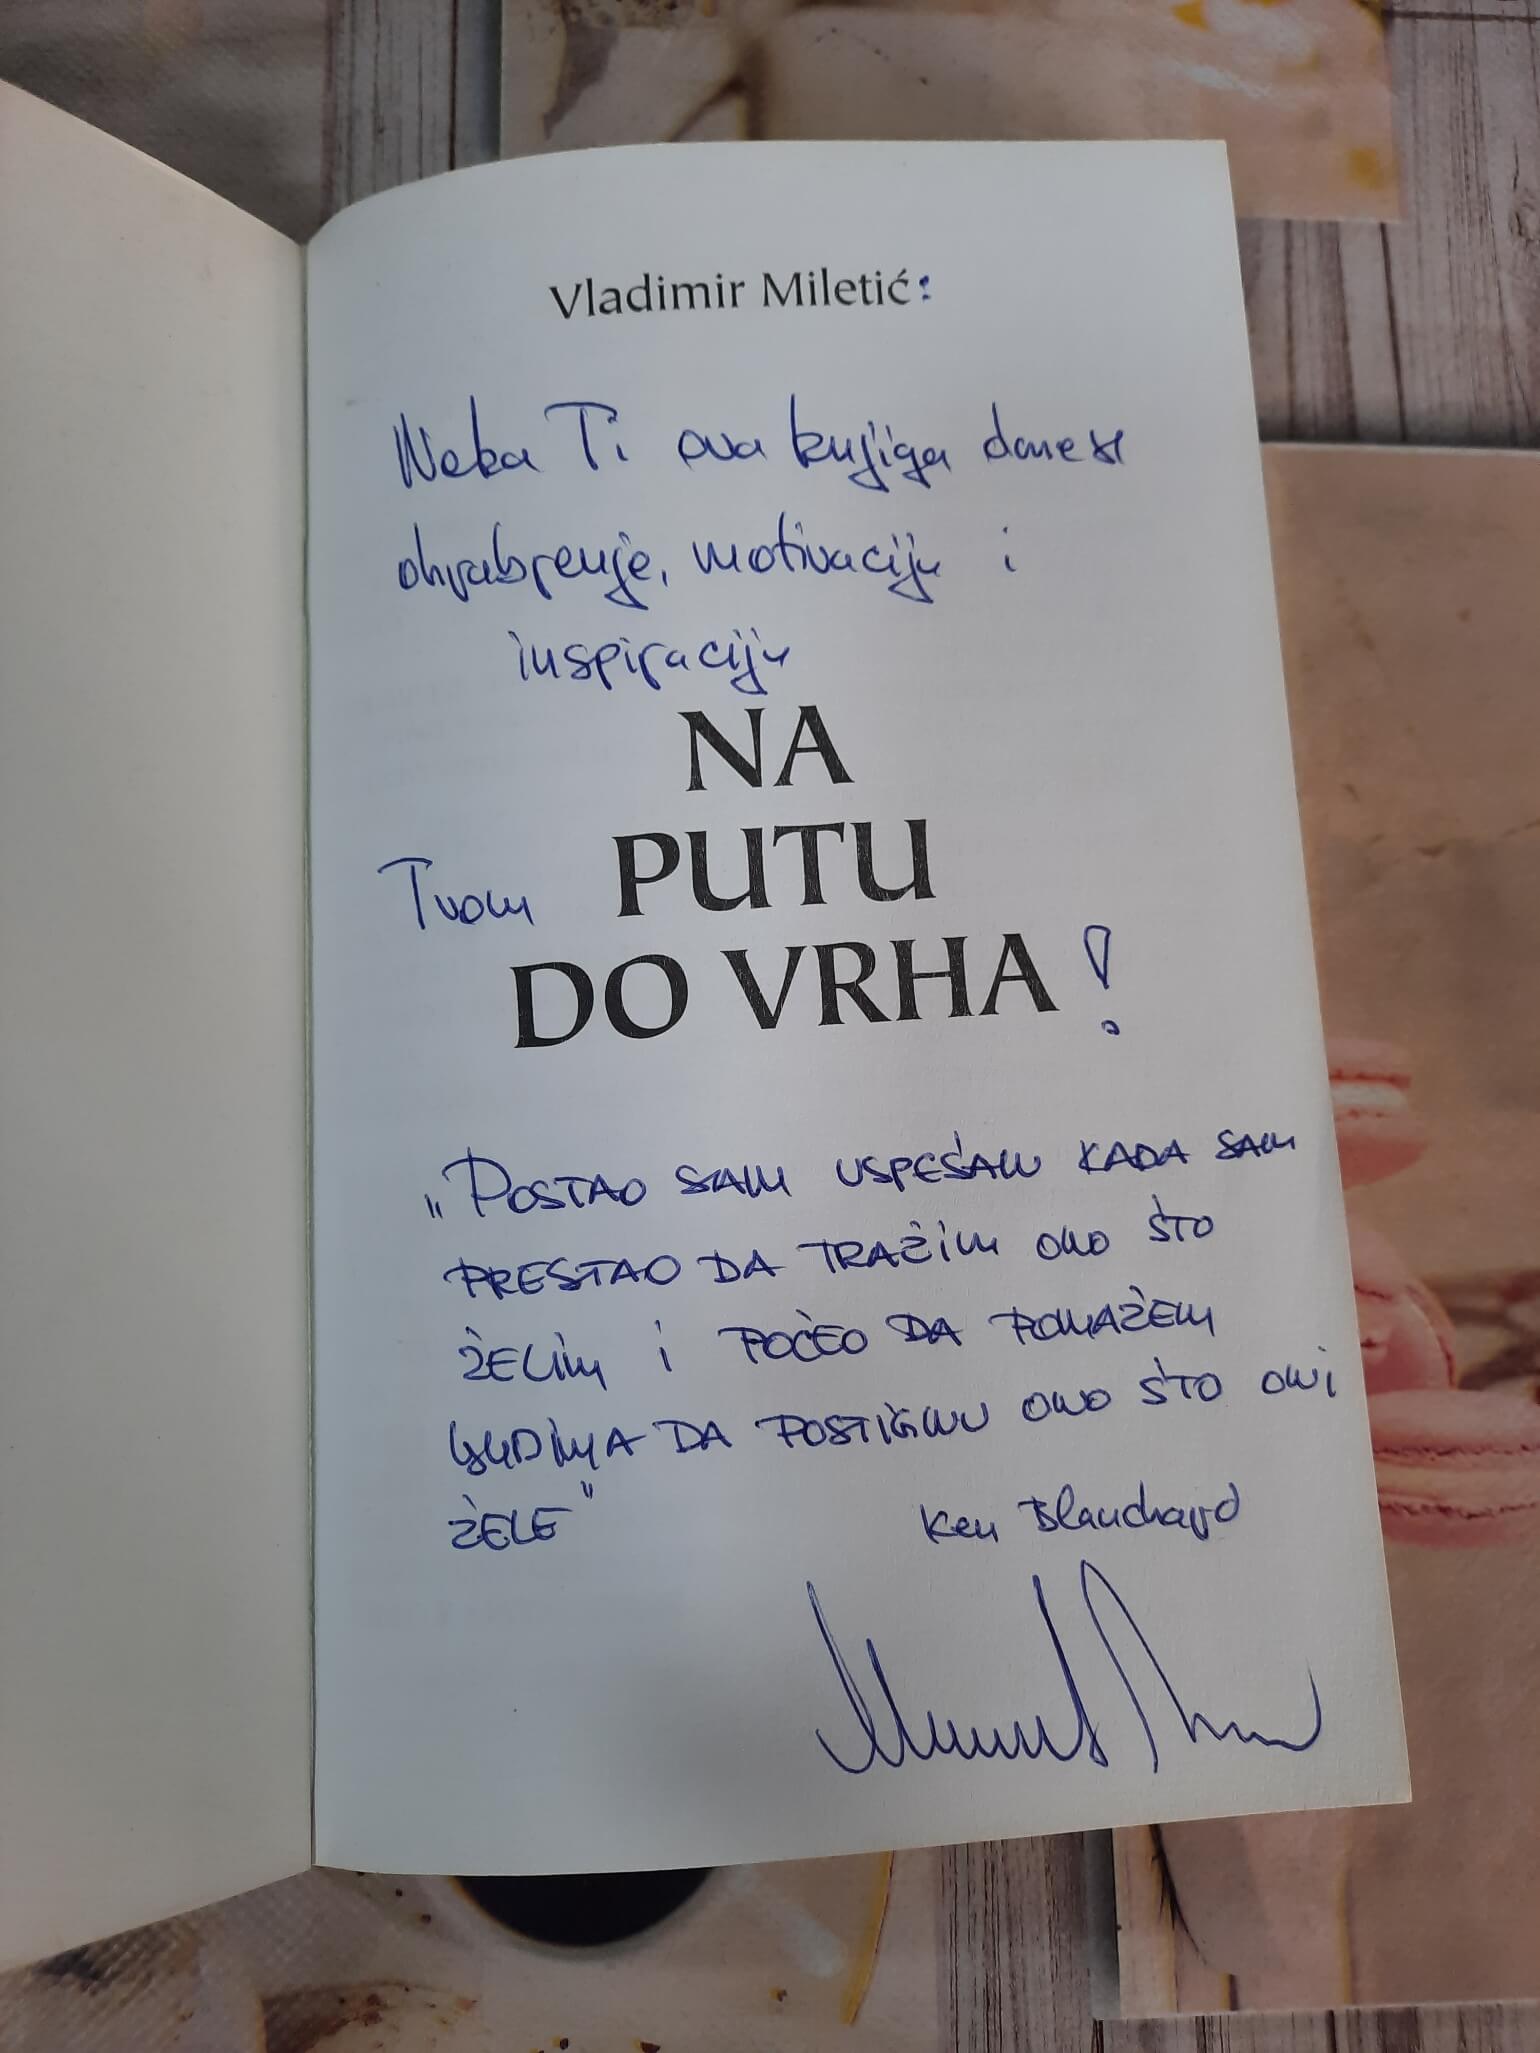 Vladimir Miletić:
Neka Ti ova knjiga donese
ohrabrenje, motivaciju i
inspiraciju
NA
Tvom PUTU
DO VRHA!
„POSTAO SAM USPEŠAN KADA SAM
PRESTAO DA TRAŽIM ONO ŠTO
ŽELIM I POČEO DA POMAŽEM
LJUDIMA DA POSTIGNU ONO ŠTO ONI
ŽELE"
Ken Blanchard